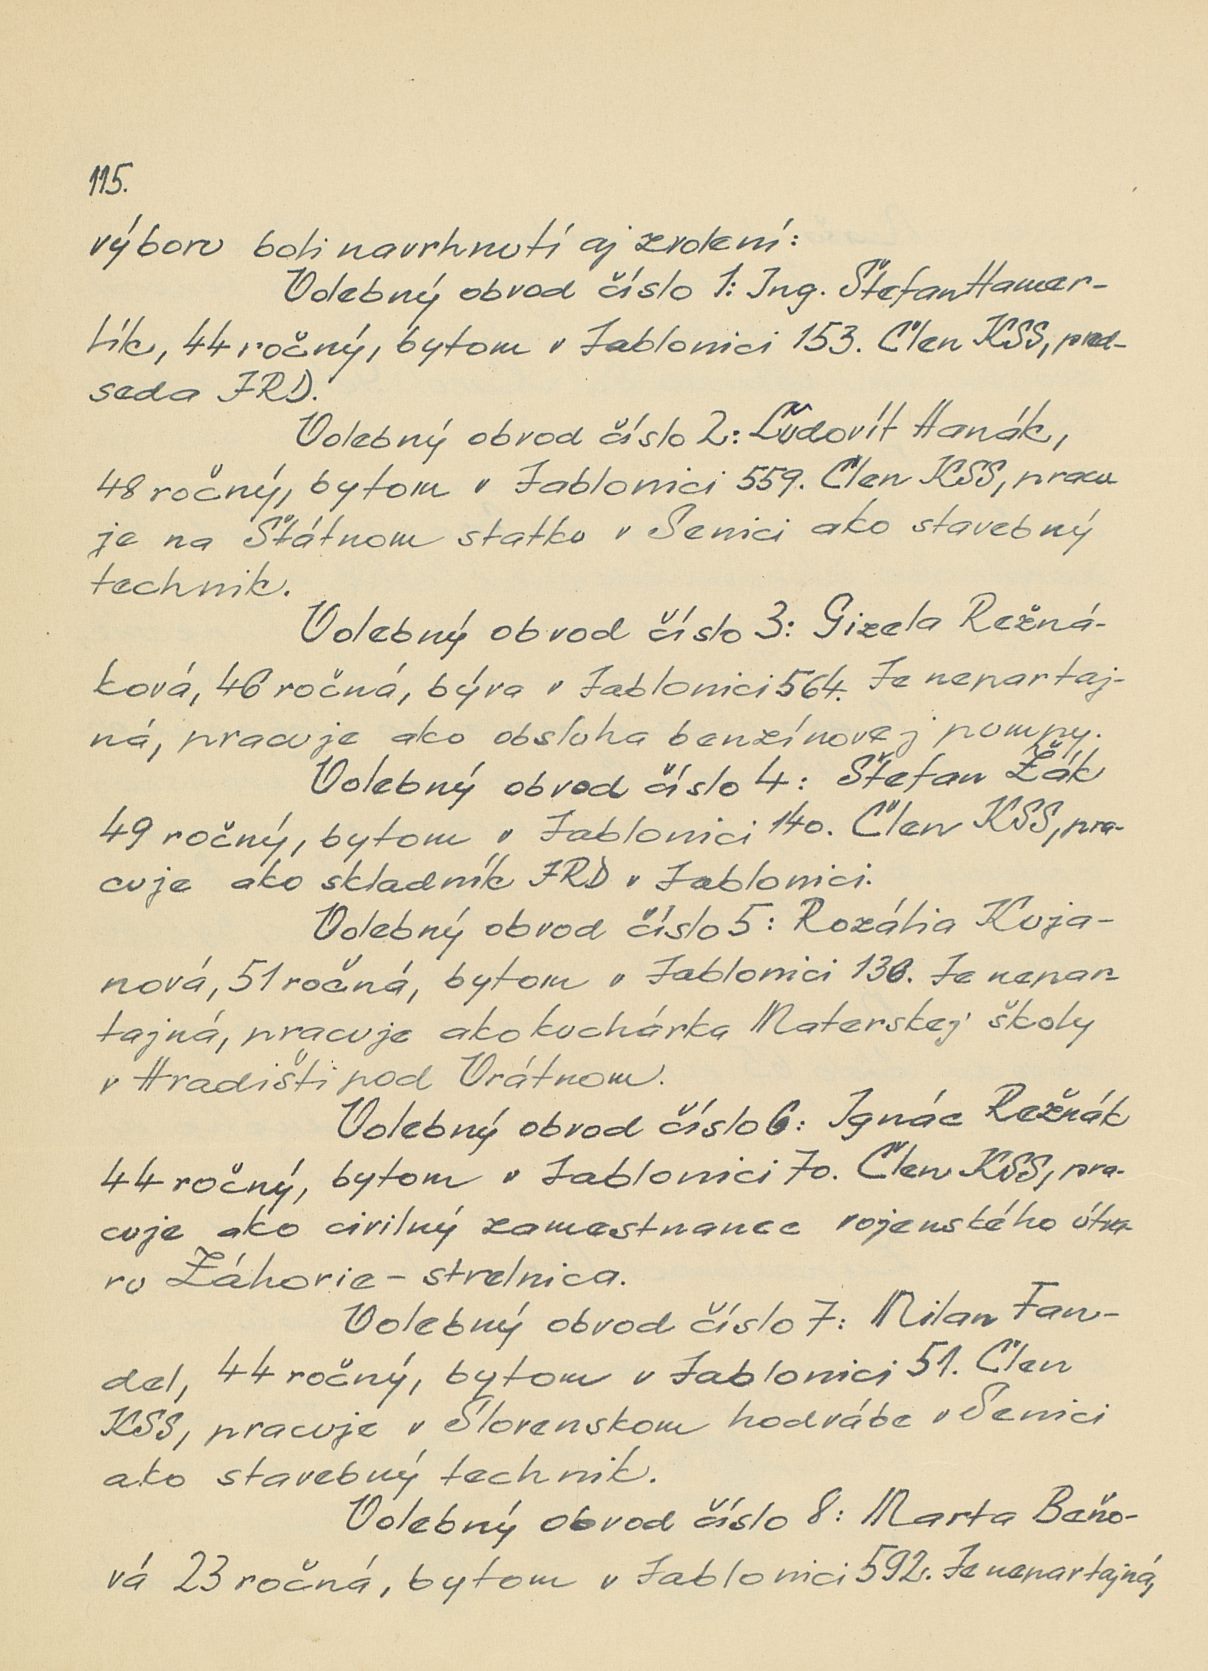 115.
výboru boli navrhnutí aj zvolení:
Volebný obvod číslo 1: Ing. Štefan Hamer-
lík, 44 ročný, bytom v Jablonici 153. Člen KSS, pred-
seda JRD.
Volebný obvod číslo 2: Ľudovít Hanák,
48 ročný, bytom v Jablonici 559. Člen KSS, pracu
je na Štátnom statku v Senici ako stavebný
technik.
Volebný obvod číslo 3: Gizela Režná-
ková, 46 ročná, býva v Jablonici 564. Je nepartaj-
ná, pracuje ako obsluha benzínovej pumpy.
Volebný obvod číslo 4: Štefan Žák
49 ročný, bytom v Jablonici 140. Člen KSS, pra-
cuje ako skladník JRD v Jablonici.
Volebný obvod číslo 5: Rozália Kuja-
nová, 51 ročná, bytom v Jablonici 136. Je nepar-
tajná, pracuje ako kuchárka Materskej školy
v Hradišti pod Vrátnom.
Volebný obvod číslo 6: Ignác Režnák
44 ročný, bytom v Jablonici 70. Člen KSS, pra-
cuje ako civilný zamestnanec vojenského útva-
ru Záhorie - strelnica.
Volebný obvod číslo 7: Milan Fan-
del, 44 ročný, bytom v Jablonici 51. Člen
KSS, pracuje v Slovenskom hodvábe v Senici
ako stavebný technik.
Volebný obvod číslo 8: Marta Beňo-
vá 23 ročná, bytom v Jablonici 592. Je nepartajná,